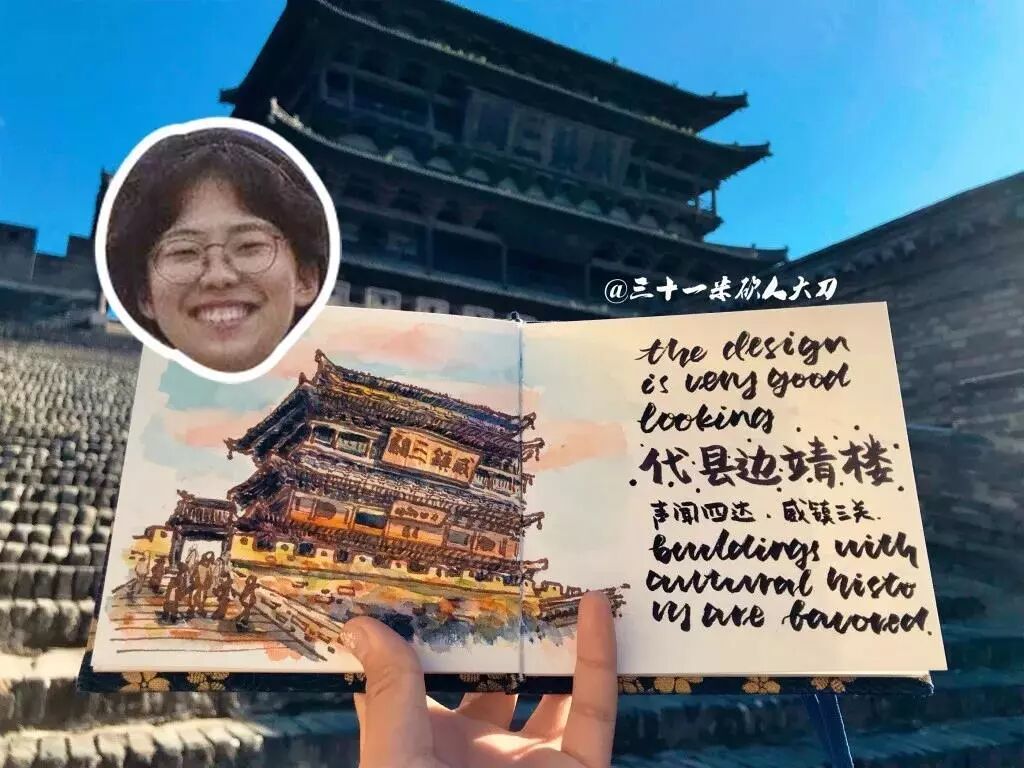 @三十一米砍人大刀
威鎮三關
the design
is very good
looking.
代县边靖楼
声闻四达.威镇三关.
buildings with
cultural histo
ry are favored.